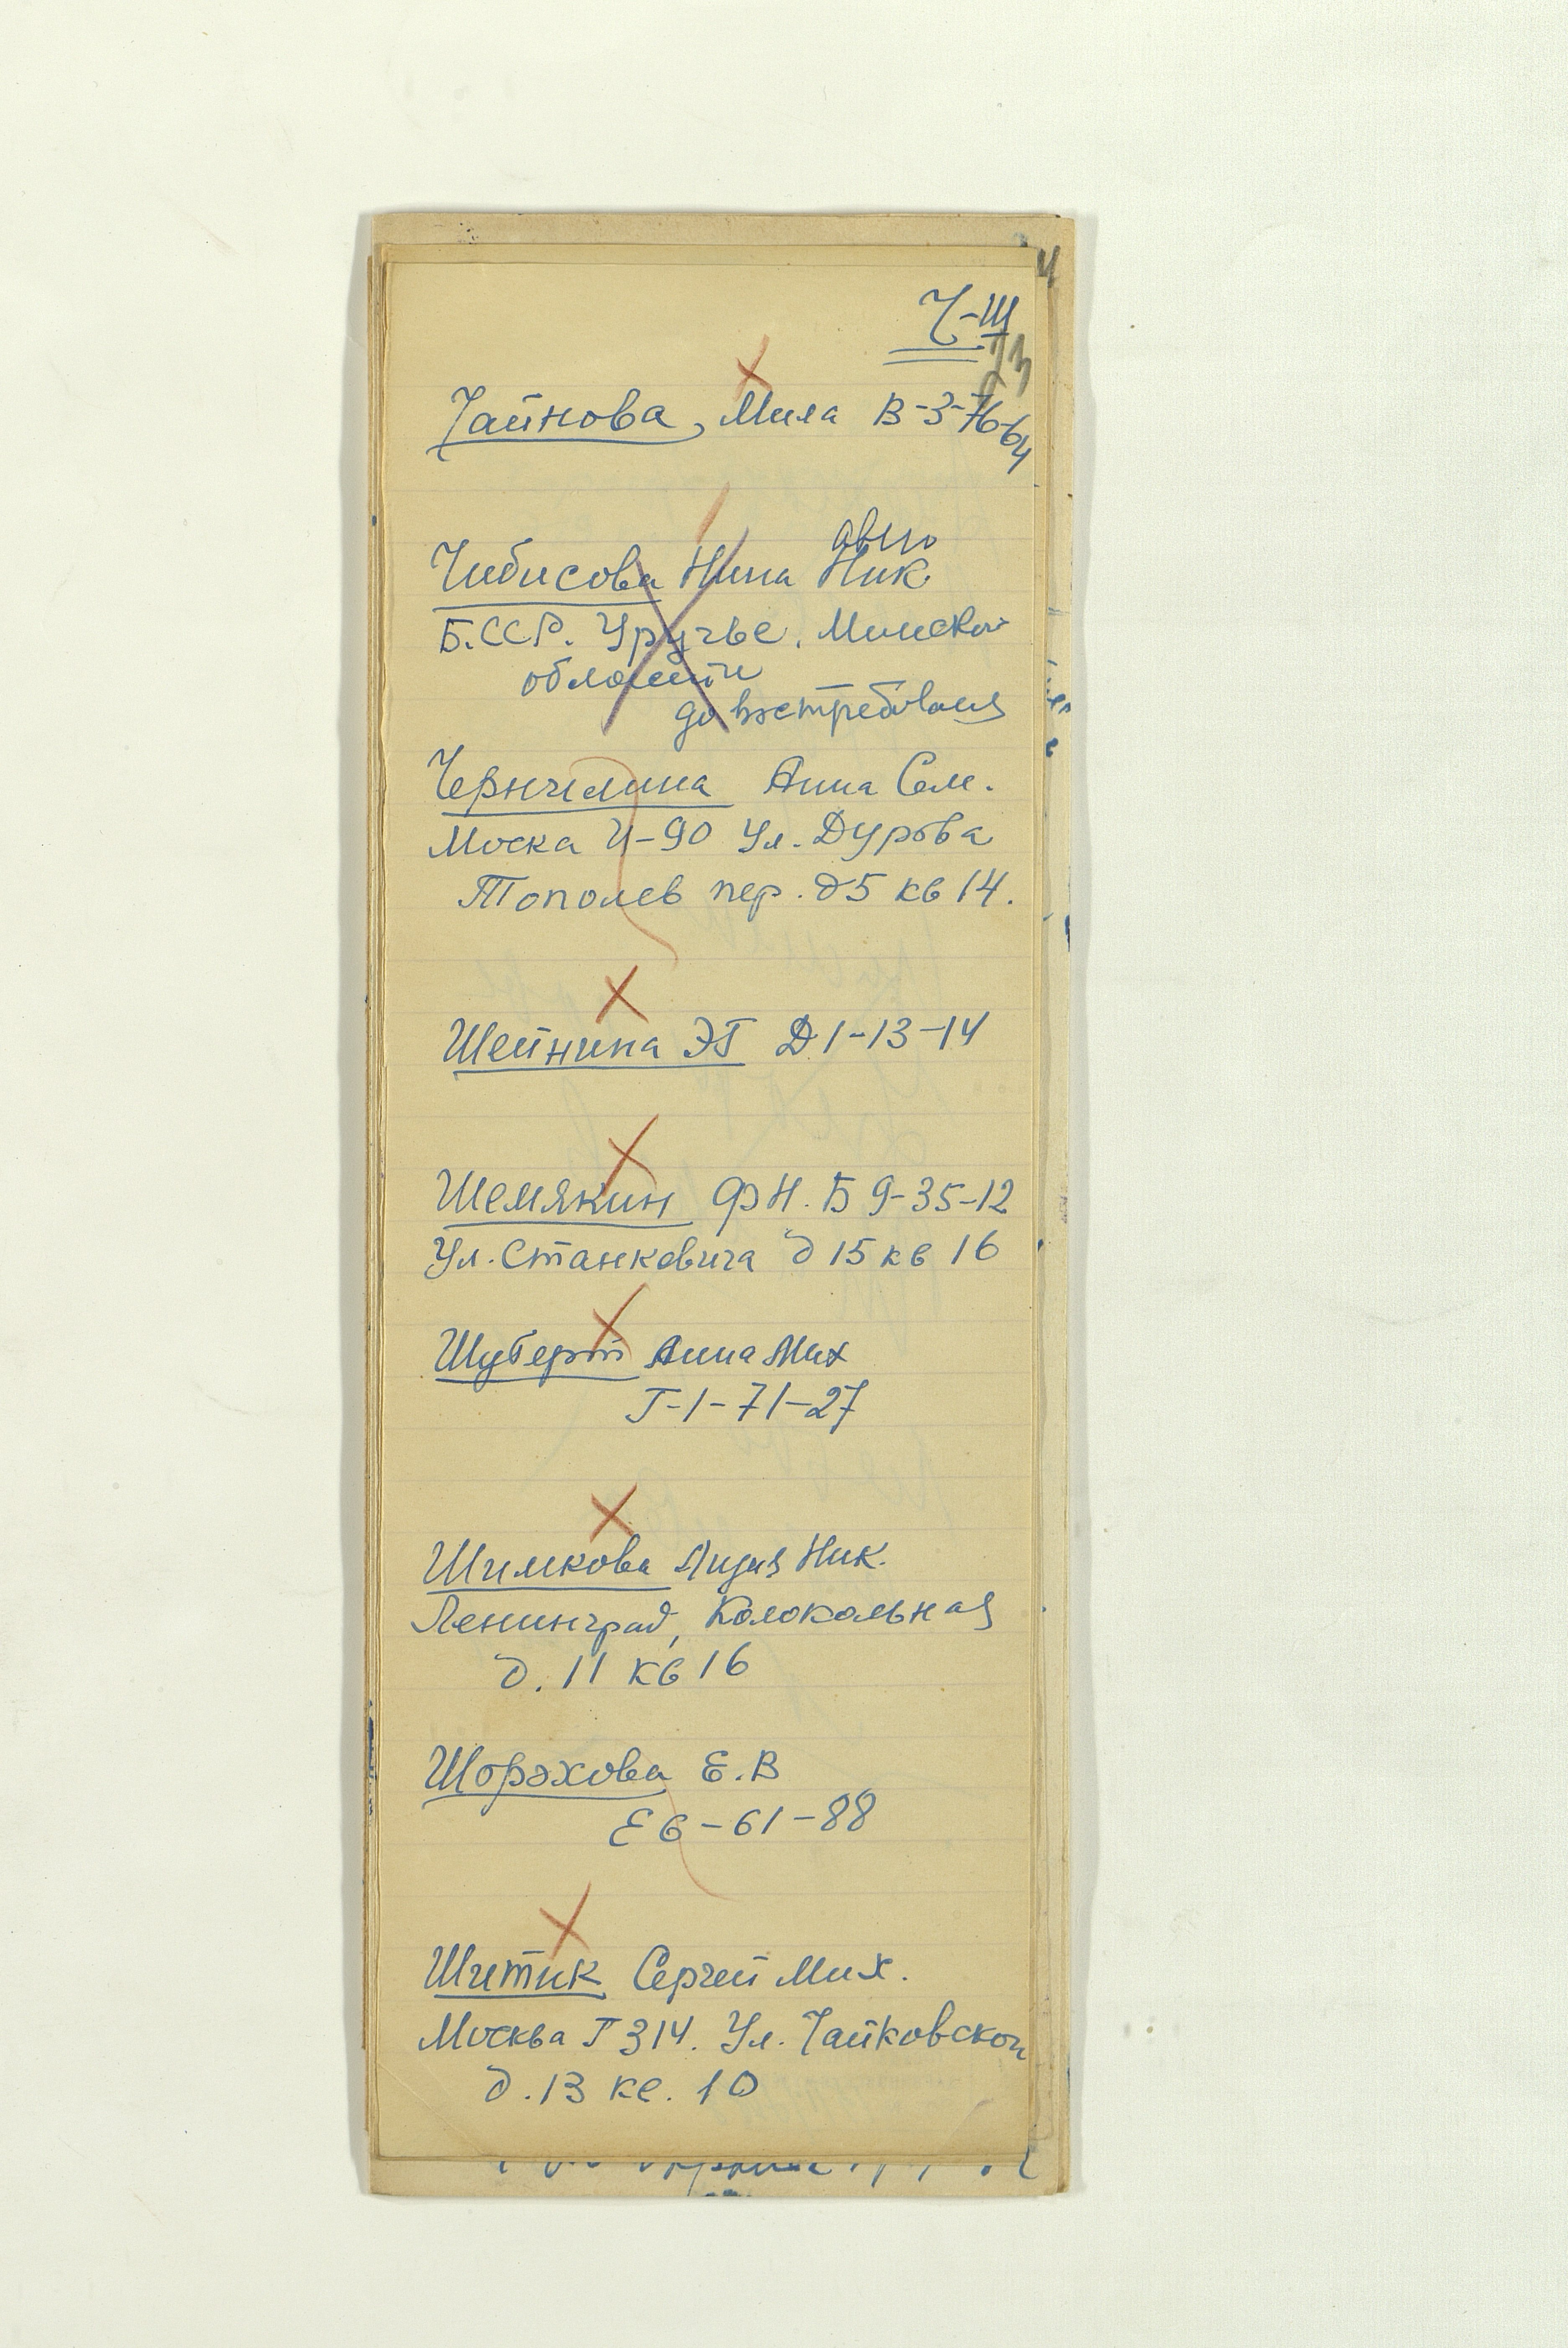 Ч-Ш
23
Чайнова, Мила В-3-76-64
авио
Чибисова Нина Ник
Б.ССР. Уручье. Минской
области
до востребования
Чернчилина Анна Сем.
Моска И-90 Ул. Дурова
Тополев пер. д5 кв 14.
Шейнина ЭГ Д 1-13-14
Шемякин ФН. Б 9-35-12
Ул. Станкевича д 15 кв 16
Шуберт Анна Мих
Г-1-71-27
Шимкова Лидия Ник.
Ленинград, Колокольная
д. 11 кв 16
Шорохова Е.В
Е6-61-88
Шитик Сергей Мих.
Москва Г 314. Ул. Чайковской
д. 13 кв. 10